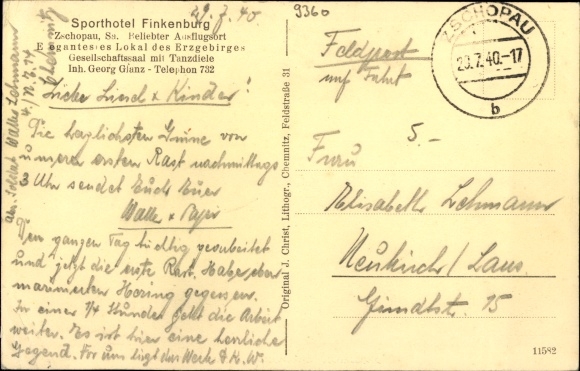 9360
29.7.40
Sporthotel Finkenburg
Zschopau, Sa. Beliebter Ausflugsort
Elegantestes Lokal des Erzgebirges
Gesellschaftssaal mit Tanzdiele
Inh. Georg Glanz - Telephon 732
Liebe Liesel + Kinder!
Die herzlichsten Grüße von
unserer ersten Rast nachmittags
3 Uhr sendet Euch Euer
Walter + Papi
Den ganzen Tag tüchtig gearbeitet
und jetzt die erste Rast. Habe eben
marinierten Hering gegessen.
In einer 1/4 Stunde geht die Arbeit
weiter. Es ist hier eine herrliche
Gegend. Vor uns liegt das Werk D.K.W.
Abs. Soldat Walter Lehmann
Chemnitz
Original J. Christ, Lithogr., Chemnitz, Feldstraße 31
ZSCHOPAU
29.7.40.-17
b
Feldpost
auf Fahrt
5.-
Frau
Elisabeth Lehmann
Neukirch / Laus.
11582